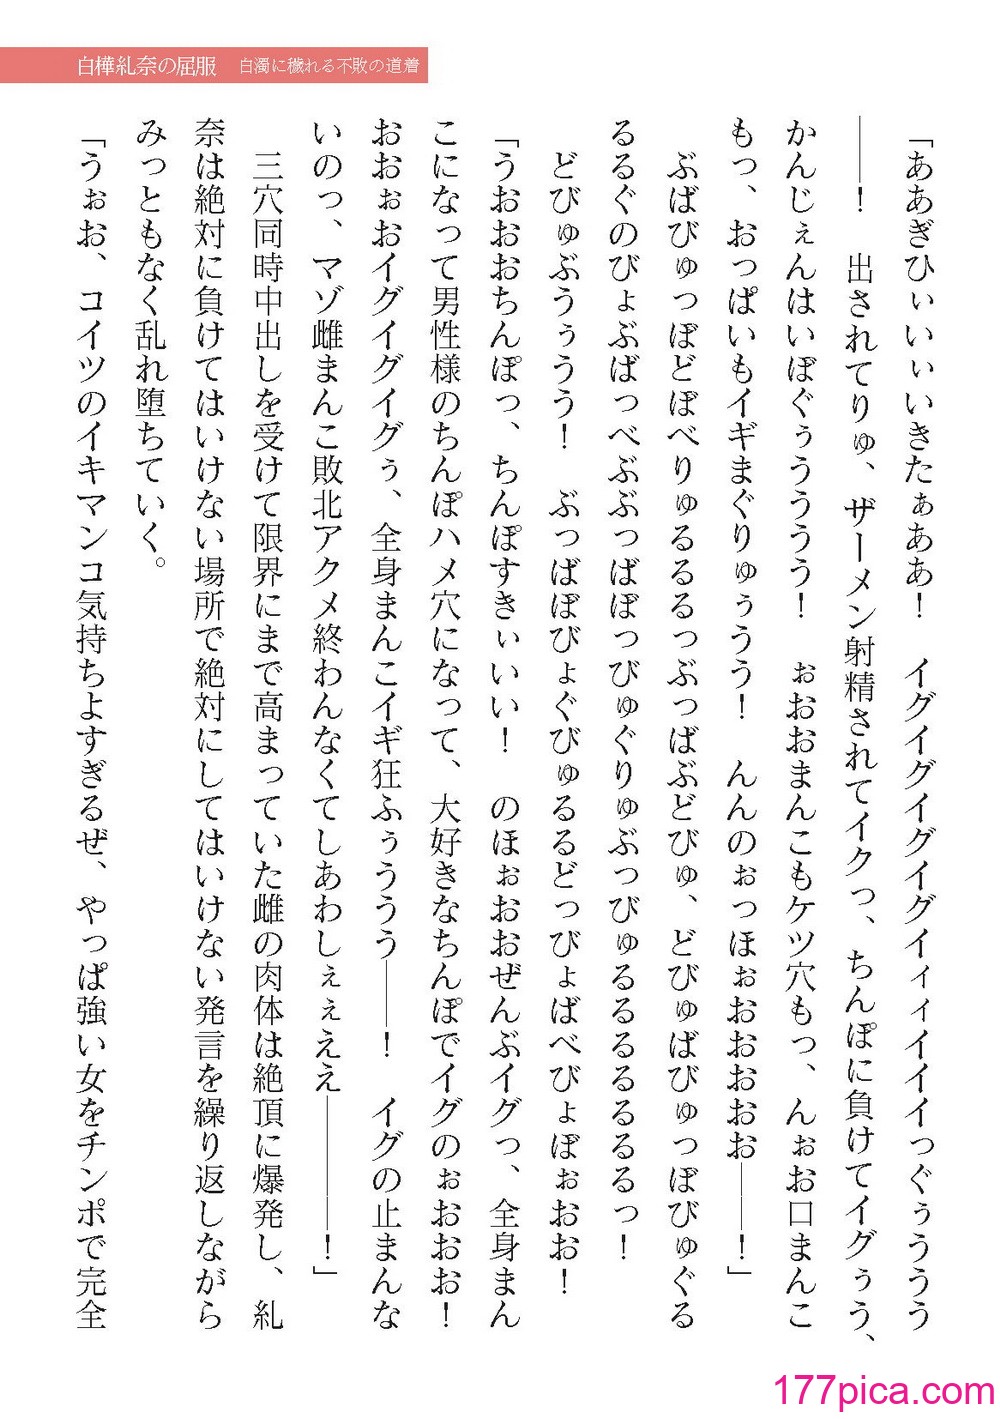 白樺糺奈の屈服 白濁に穢れる不敗の道着
「ああぎひぃいぃいきたぁああ！　イグイグイグイグイィィイイイっぐぅううう
――！　出されてりゅ、ザーメン射精されてイクっ、ちんぽに負けてイグぅう、
かんじぇんはいぼぐぅうううう！　ぉおおまんこもケツ穴もっ、んぉお口まんこ
もっ、おっぱいもイギまぐりゅぅうう！　んんのぉっほぉおおおおお――！」
　ぶばびゅっぼどぼべりゅるるるっぶっばぶどびゅ、どびゅばびゅっぼびゅぐる
るるぐのびょぶばっべぶぶっばぼっびゅぐりゅぶっびゅるるるるるるるっ！
　どびゅぶうぅうう！　ぶっばぼびょぐびゅるるどっびょばべびょぼぉおお！
「うおおおちんぽっ、ちんぽすきぃいい！　のほぉおおぜんぶイグっ、全身まん
こになって男性様のちんぽハメ穴になって、大好きなちんぽでイグのぉおおお！
おおぉおイグイグイグぅ、全身まんこイギ狂ふぅううう――！　イグの止まんな
いのっ、マゾ雌まんこ敗北アクメ終わんなくてしあわしぇぇええ――――！」
　三穴同時中出しを受けて限界にまで高まっていた雌の肉体は絶頂に爆発し、糺
奈は絶対に負けてはいけない場所で絶対にしてはいけない発言を繰り返しながら
みっともなく乱れ堕ちていく。
「うぉお、コイツのイキマンコ気持ちよすぎるぜ、やっぱ強い女をチンポで完全
177pica.com